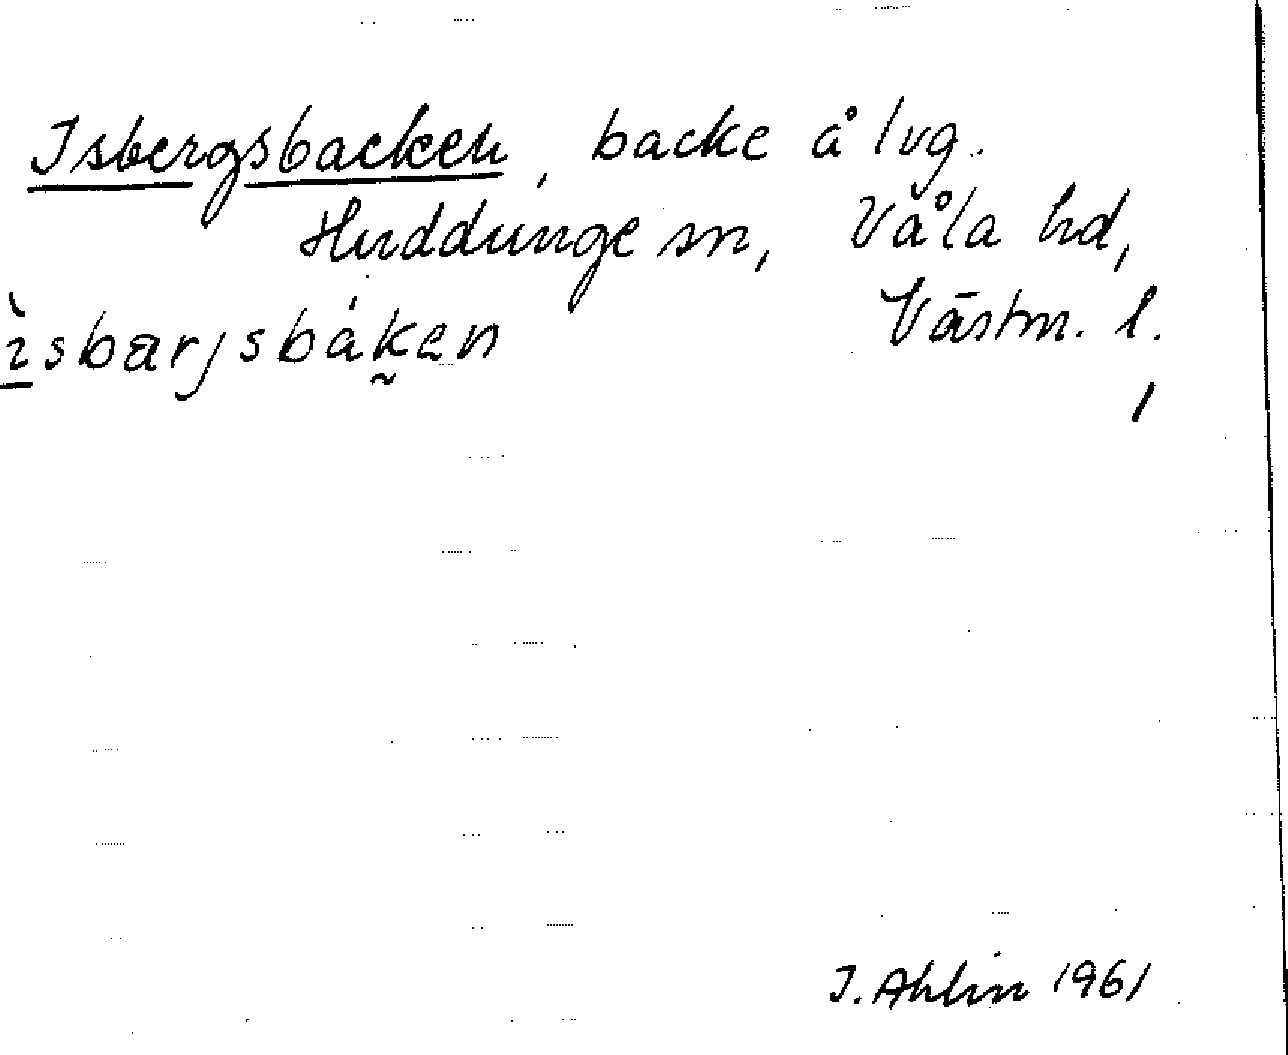 Isbergsbacken, backe å lvg.
Huddunge sn, Våla hd,
ìsbærjsbáken Västm. l.
I. Ahlin 1961